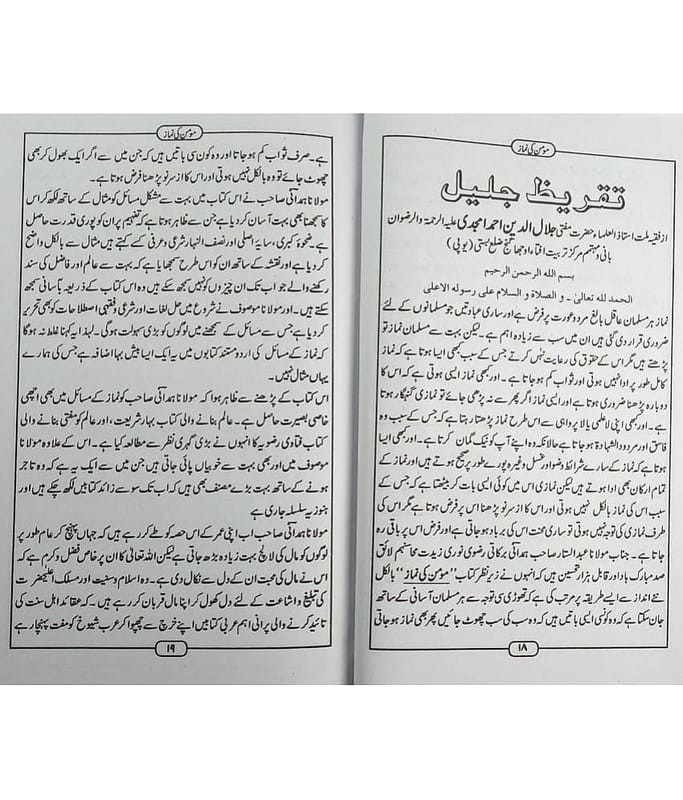 مؤمن کی نماز
تقریظ جلیل
از فقیہ ملت استاذ العلماء حضرت مفتی جلال الدین احمد امجدی علیہ الرحمۃ والرضوان
بانی و مہتمم مرکز تربیت افتاء اوجھا گنج ضلع بستی (یوپی)
بسم الله الرحمن الرحيم
الحمد لله تعالىٰ - و الصلاة و السلام على رسوله الاعلى
نماز ہر مسلمان عاقل بالغ مرد و عورت پر فرض ہے اور ساری عبادتیں جو مسلمانوں کے لئے
ضروری قرار دی گئی ہیں ان میں سب سے زیادہ اہم ہے۔ لیکن بہت سے مسلمان نماز تو
پڑھتے ہیں مگر اس کے حقوق کی رعایت نہیں کرتے جس کے سبب کبھی ایسا ہوتا ہے کہ نماز
کامل طور پر ادا نہیں ہوتی اور ثواب کم ہو جاتا ہے۔ اور کبھی نماز ایسی ہوتی ہے کہ اس کا
دوبارہ پڑھنا ضروری ہوتا ہے اور ایسی نماز اگر پھر سے نہ پڑھی جائے تو نمازی گنہگار ہوتا
ہے۔ اور کبھی اپنی لاعلمی یا لاپرواہی سے اس طرح نماز پڑھتا رہتا ہے کہ جس کے سبب وہ
فاسق اور مردود الشہادۃ ہو جاتا ہے حالانکہ وہ اپنے آپ کو نیک گمان کرتا ہے۔ اور کبھی ایسا
ہوتا ہے کہ نماز کے سارے شرائط وضو اور غسل وغیرہ پورے طور پر صحیح ہوتے ہیں اور نماز کے
تمام ارکان بھی ادا ہوتے ہیں لیکن نمازی اس میں کوئی ایسی بات کر بیٹھتا ہے کہ جس کے
سبب اس کی نماز بالکل نہیں ہوتی اور اس کا از سر نو پڑھنا اس پر فرض ہوتا ہے مگر اس کی
طرف نمازی کی توجہ نہیں ہوتی تو ساری محنت اس کی برباد ہو جاتی ہے اور فرض اس پر باقی رہ
جاتا ہے۔ جناب مولانا عبدالستار صاحب ہمدانی برکاتی رضوی نوری زیدت محاسنہم لائق
صد مبارک باد اور قابل ہزار تحسین ہیں کہ انہوں نے زیر نظر کتاب "مؤمن کی نماز" بالکل
نئے انداز سے ایسے طریقہ پر مرتب کی ہے کہ تھوڑی سی توجہ سے ہر مسلمان آسانی کے ساتھ
جان سکتا ہے کہ وہ کونسی ایسی باتیں ہیں کہ وہ سب کی سب چھوٹ جائیں پھر بھی نماز ہو جاتی
۱۸
مؤمن کی نماز
ہے۔ صرف ثواب کم ہو جاتا اور وہ کون سی باتیں ہیں کہ جن میں سے اگر ایک بھول کر بھی
چھوٹ جائے تو وہ بالکل نہیں ہوتی اور اس کا از سر نو پڑھنا فرض ہوتا ہے۔
مولانا ہمدانی صاحب نے اس کتاب میں بہت سے مشکل مسائل کو مثال کے ساتھ لکھ کر اس
کا سمجھنا بھی بہت آسان کر دیا ہے جن سے ظاہر ہوتا ہے کہ تفہیم پر ان کو پوری قدرت حاصل
ہے۔ ضحوۂ کبریٰ، سایۂ اصلی اور نصف النہار شرعی و عرفی کسے کہتے ہیں مثال سے بالکل واضح
کر دیا ہے اور نقشہ کے ساتھ ان کو اس طرح سمجھایا ہے کہ بہت سے عالم اور فاضل کی سند
والے جو اب تک ان چیزوں کو نہیں سمجھ سکے ہیں وہ اس کتاب کے ذریعہ بآسانی سمجھ
سکتے ہیں۔ اور مولانا موصوف نے شروع میں حل لغات اور شرعی و فقہی اصطلاحات کو بھی تحریر
کر دیا ہے جس سے مسائل کے سمجھنے میں لوگوں کو بڑی سہولت ہو گی۔ لہٰذا یہ کہنا غلط نہ ہوگا
کہ نماز کے مسائل کی اردو مستند کتابوں میں یہ ایک ایسا بیش بہا اضافہ ہے جس کی ہمارے
یہاں مثال نہیں۔
اس کتاب کے پڑھنے سے ظاہر ہوا کہ مولانا ہمدانی صاحب کو نماز کے مسائل میں بھی اچھی
خاصی بصیرت حاصل ہے۔ عالم بنانے والی کتاب بہار شریعت، اور عالم کو مفتی بنانے والی
کتاب فتاوی رضویہ کا انہوں نے بڑی گہری نظر سے مطالعہ کیا ہے۔ اس کے علاوہ مولانا
موصوف میں اور بھی بہت سے خوبیاں پائی جاتی ہیں جن میں سے ایک یہ ہے کہ وہ تاجر
ہونے کے ساتھ بہت بڑے مصنف بھی ہیں کہ اب تک سو سے زائد کتابیں لکھ چکے ہیں اور
ہنوز یہ سلسلہ جاری ہے
مولانا ہمدانی صاحب اب اپنی عمر کے اس حصہ کو طے کر رہے ہیں کہ جہاں پہنچ کر عام طور پر
لوگوں کو مال کی لالچ بہت زیادہ بڑھ جاتی ہے لیکن اللہ تعالیٰ کا ان پر خاص فضل و کرم ہے کہ
اس نے مال کی محبت ان کے دل سے نکال دی ہے۔ وہ اسلام و سنیت اور مسلک اعلیٰحضرت
کی تبلیغ و اشاعت کے لئے دل کھول کر اپنا مال قربان کر رہے ہیں۔ کہ عقائد اہل سنت کی
تائید کرنے والی پرانی اہم عربی کتابیں اپنے خرچ سے چھپوا کر عرب شیوخ کو مفت پہنچا رہے
۱۹